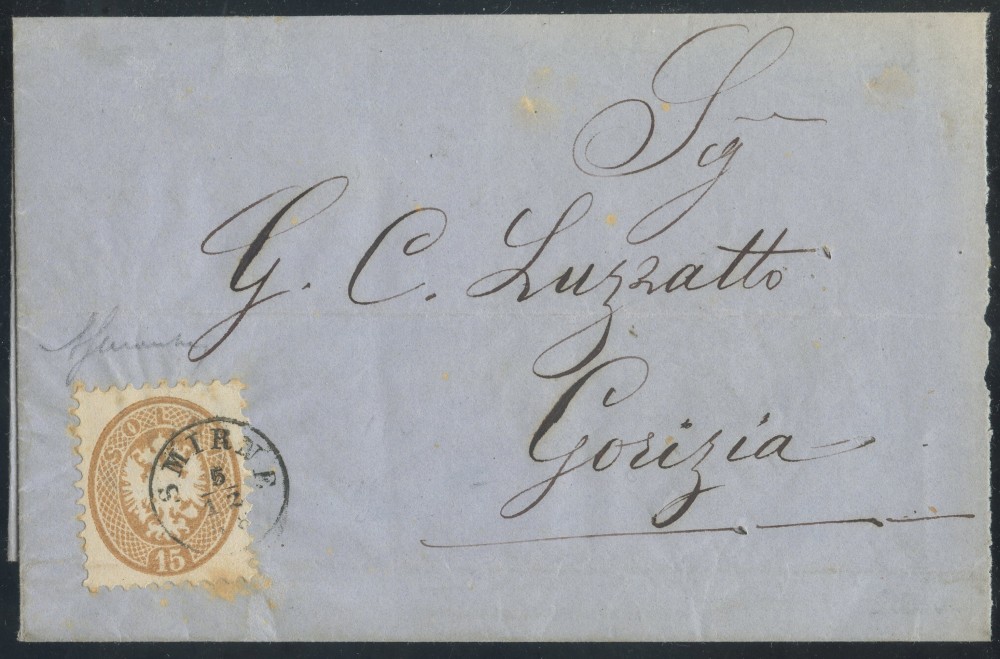 Sig
G. C. Luzzatto
Gorizia
SOL
15
SMIRNE
5/12